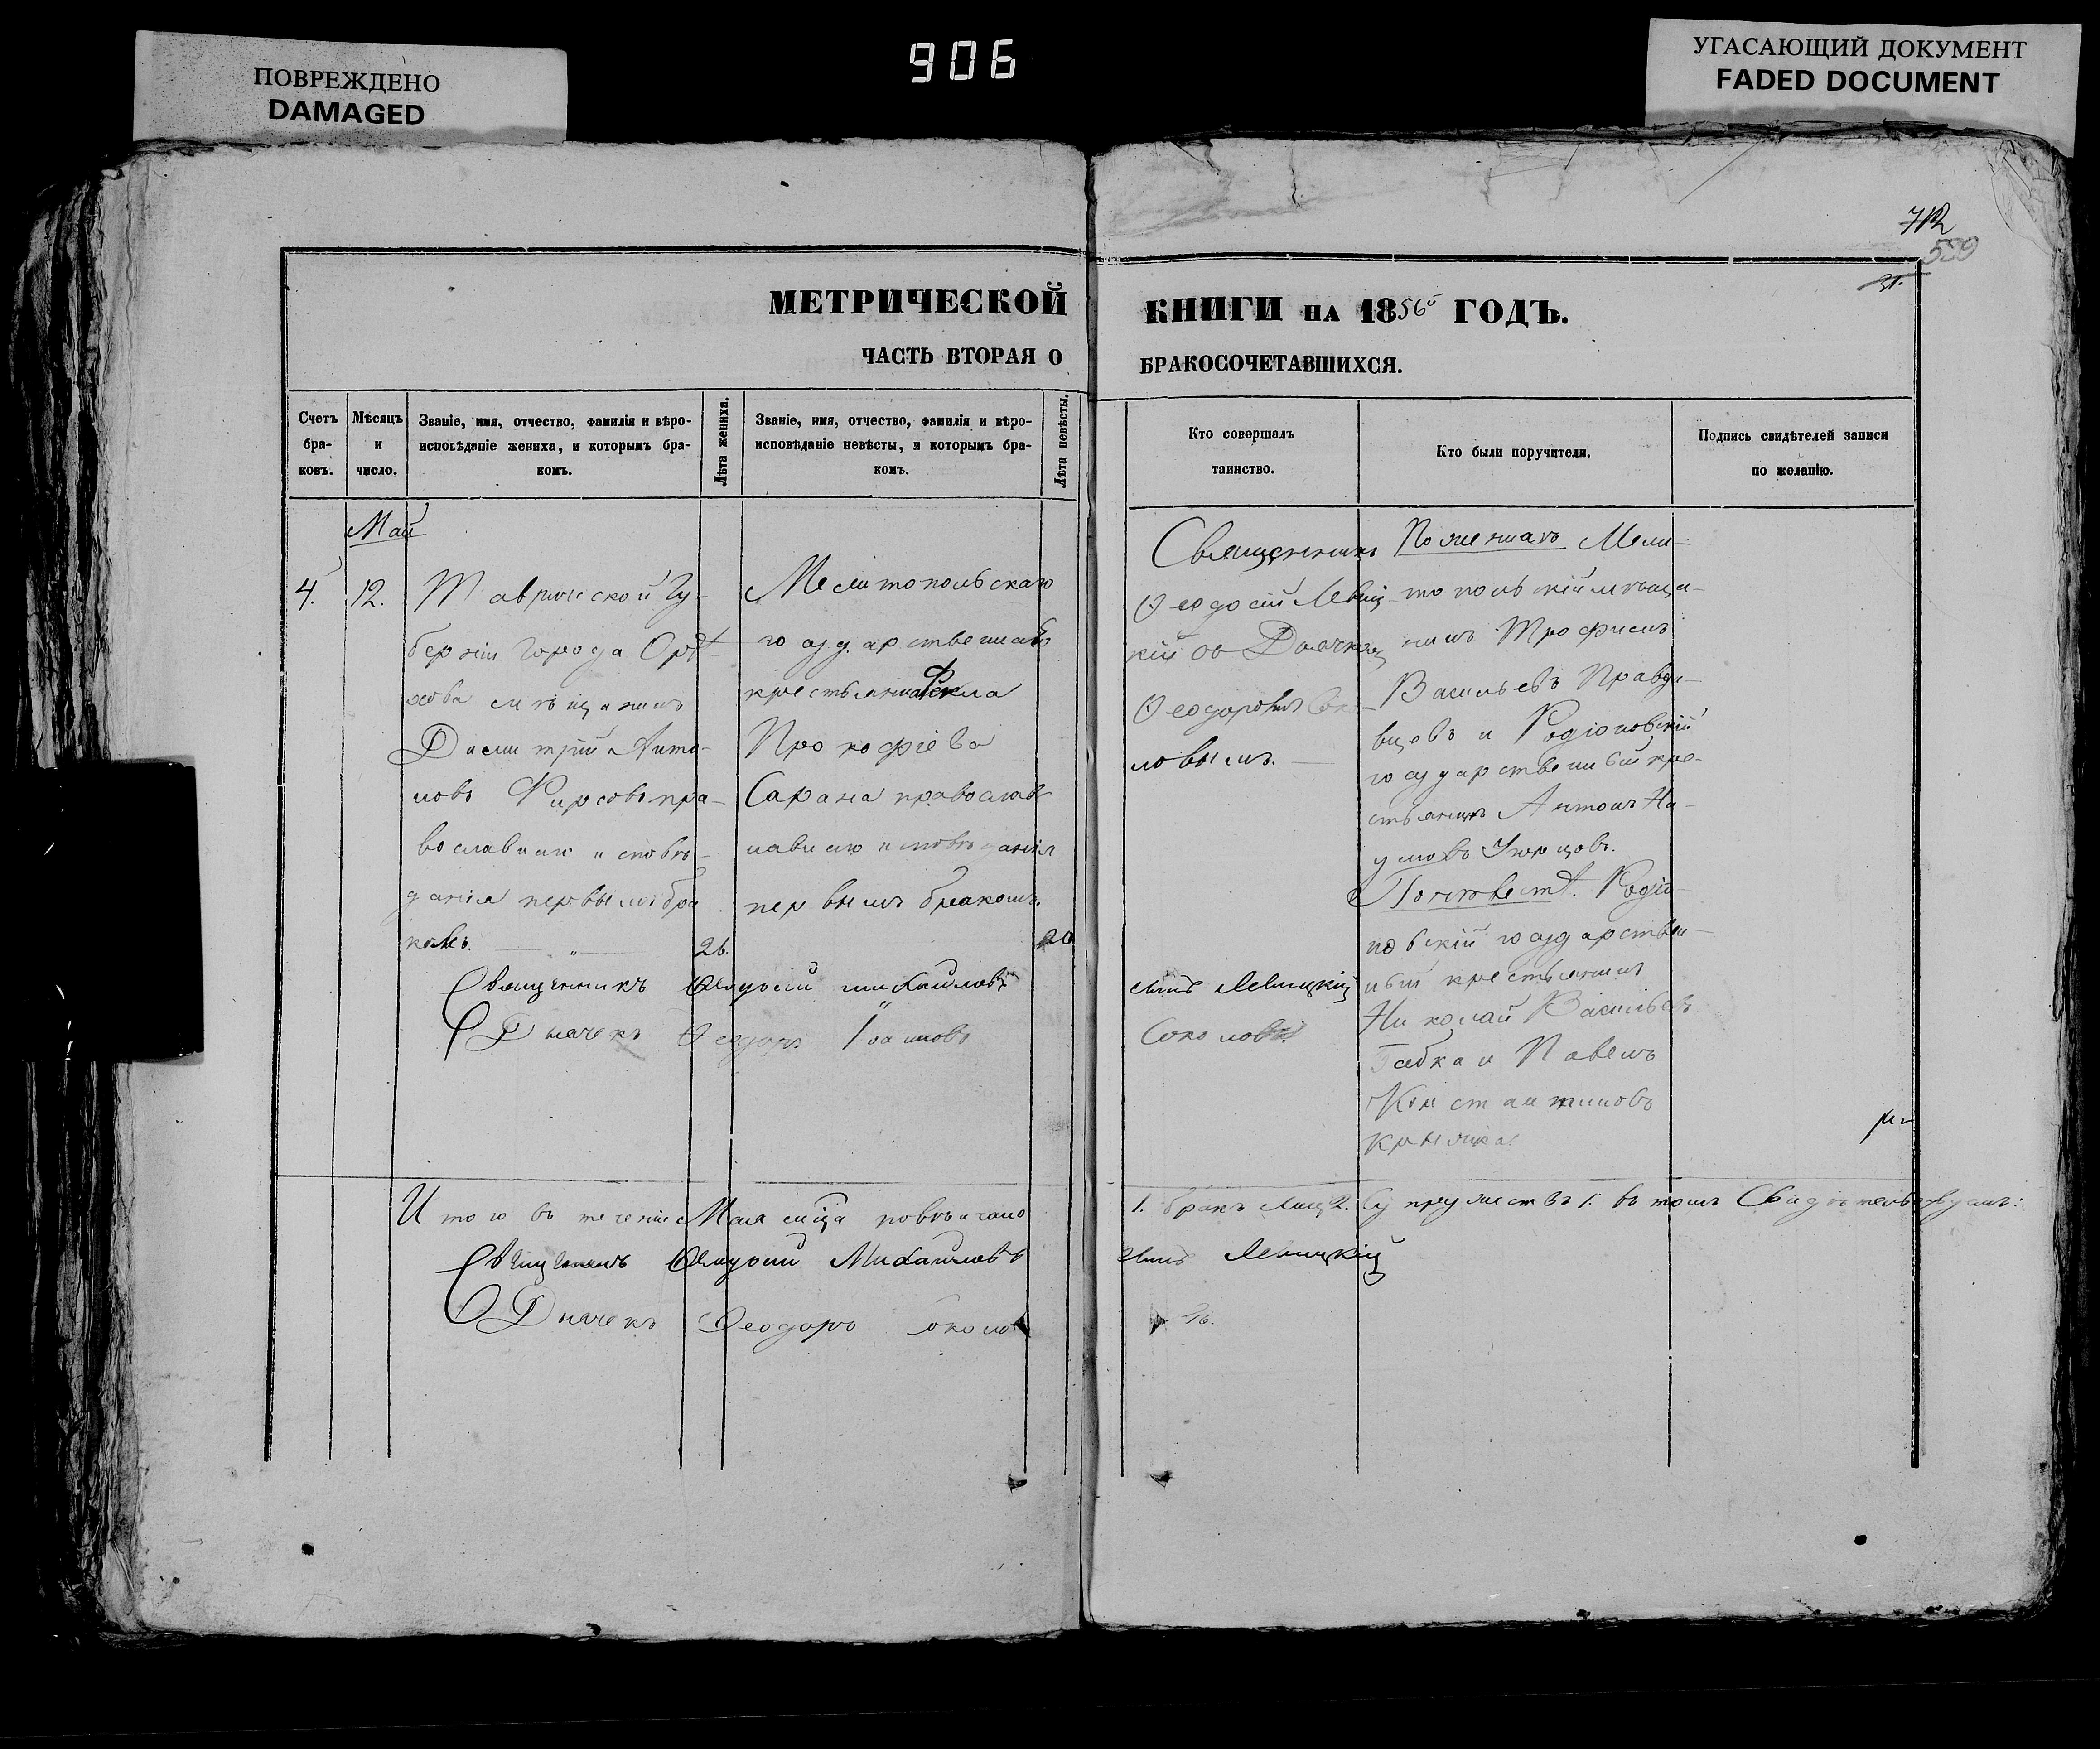 ПОВРЕЖДЕНО
DAMAGED
906
УГАСАЮЩИЙ ДОКУМЕНТ
FADED DOCUMENT
712
559
МЕТРИЧЕСКОЙ КНИГИ НА 1856 ГОДЪ.
ЧАСТЬ ВТОРАЯ О БРАКОСОЧЕТАВШИХСЯ.
Счетъ
бра-
ковъ.
Мѣсяцъ
и
число.
Званіе, имя, отчество, фамилія и вѣро-
исповѣданіе жениха, и которымъ бра-
комъ.
Лѣта жениха.
Званіе, имя, отчество, фамилія и вѣро-
исповѣданіе невѣсты, и которымъ бра-
комъ.
Лѣта невѣсты.
Кто совершалъ
таинство.
Кто были поручители.
Подпись свидѣтелей записи
по желанію.
Май
4.
12.
Таврической Гу-
берніи города Орѣ-
хова мѣщанинъ
Димитрій Анто-
новъ Фирсовъ пра-
вославнаго исповѣ-
данія первымъ бра
комъ.
26.
Мелитопольскаго
государственнаго
крестьянина Фекла
Прокофіева
Сарана православ-
наго исповѣданія
первымъ бракомъ.
20
Священникъ
Ѳеодосій Левиц-
кій съ Дьячкомъ
Ѳеодоромъ Соко-
ловымъ.
По женихѣ Мели-
топольскій мѣща-
нинъ Трофимъ
Васильевъ Правди-
вцовъ и Родіоновскій
государственный кре-
стьянинъ Антонъ На-
умовъ
По невѣстѣ. Родіо-
новскій государствен-
ный крестьянинъ
Николай Васильевъ
Бабка и Павелъ
Константиновъ
Священникъ Ѳеодосій Михайловъ сынъ Левицкій
Дьячекъ Ѳеодоръ Соколовъ
Итого въ теченіе Мая мѣсяца повѣнчано 1. бракъ лицъ 2. Супружествъ 1. въ томъ Свидѣтельствуемъ:
Священникъ Ѳеодосій Михайловъ сынъ Левицкій
Дьячекъ Ѳеодоръ Соколовъ